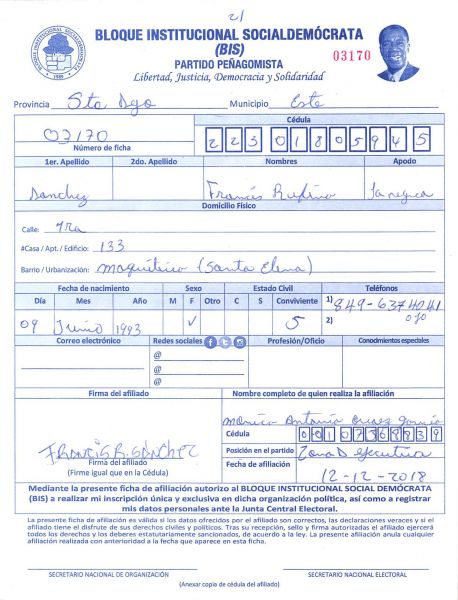 21
BLOQUE INSTITUCIONAL SOCIALDEMÓCRATA
(BIS)
03170
PARTIDO PEÑAGOMISTA
Libertad, Justicia, Democracia y Solidaridad
BLOQUE INSTITUCIONAL SOCIALDEMOCRATA
Provincia Sto Dgo Municipio Este
Cédula
03170 22301805945
Número de ficha
1er. Apellido 2do. Apellido Nombres Apodo
Sanchez Francis Rufino la negra
Domicilio Físico
Calle: 1ra
#Casa / Apt. / Edificio: 133
Barrio / Urbanización: (Santa Elena)
Fecha de nacimiento Sexo Estado Civil Teléfonos
Día Mes Año M F Otro C S Conviviente 1) 849-6374041
2)
09 Junio 1993 ✓ S
Correo electrónico Redes sociales Profesión/Oficio Conocimientos especiales
@
@
@
Firma del afiliado Nombre completo de quien realiza la afiliación
Antonia
Cédula
FRANCIS R. SANCHEZ Posición en el partido Zona D ejecutiva
Firma del afiliado Fecha de afiliación
(Firme igual que en la Cédula) 12-12-2018
Mediante la presente ficha de afiliación autorizo al BLOQUE INSTITUCIONAL SOCIAL DEMÓCRATA
(BIS) a realizar mi inscripción única y exclusiva en dicha organización política, así como a registrar
mis datos personales ante la Junta Central Electoral.
La presente ficha de afiliación es válida si los datos ofrecidos por el afiliado son correctos, las declaraciones veraces y si el
afiliado tiene el disfrute de sus derechos civiles y políticos. Tras su recepción, sello y firma autorizadas el afiliado ejercerá
todos los derechos y los deberes estatutariamente sancionados, de acuerdo a la ley. La presente afiliación anula cualquier
afiliación realizada con anterioridad a la fecha que aparece en esta ficha.
SECRETARIO NACIONAL DE ORGANIZACIÓN SECRETARIO NACIONAL ELECTORAL
(Anexar copia de cédula del afiliado)